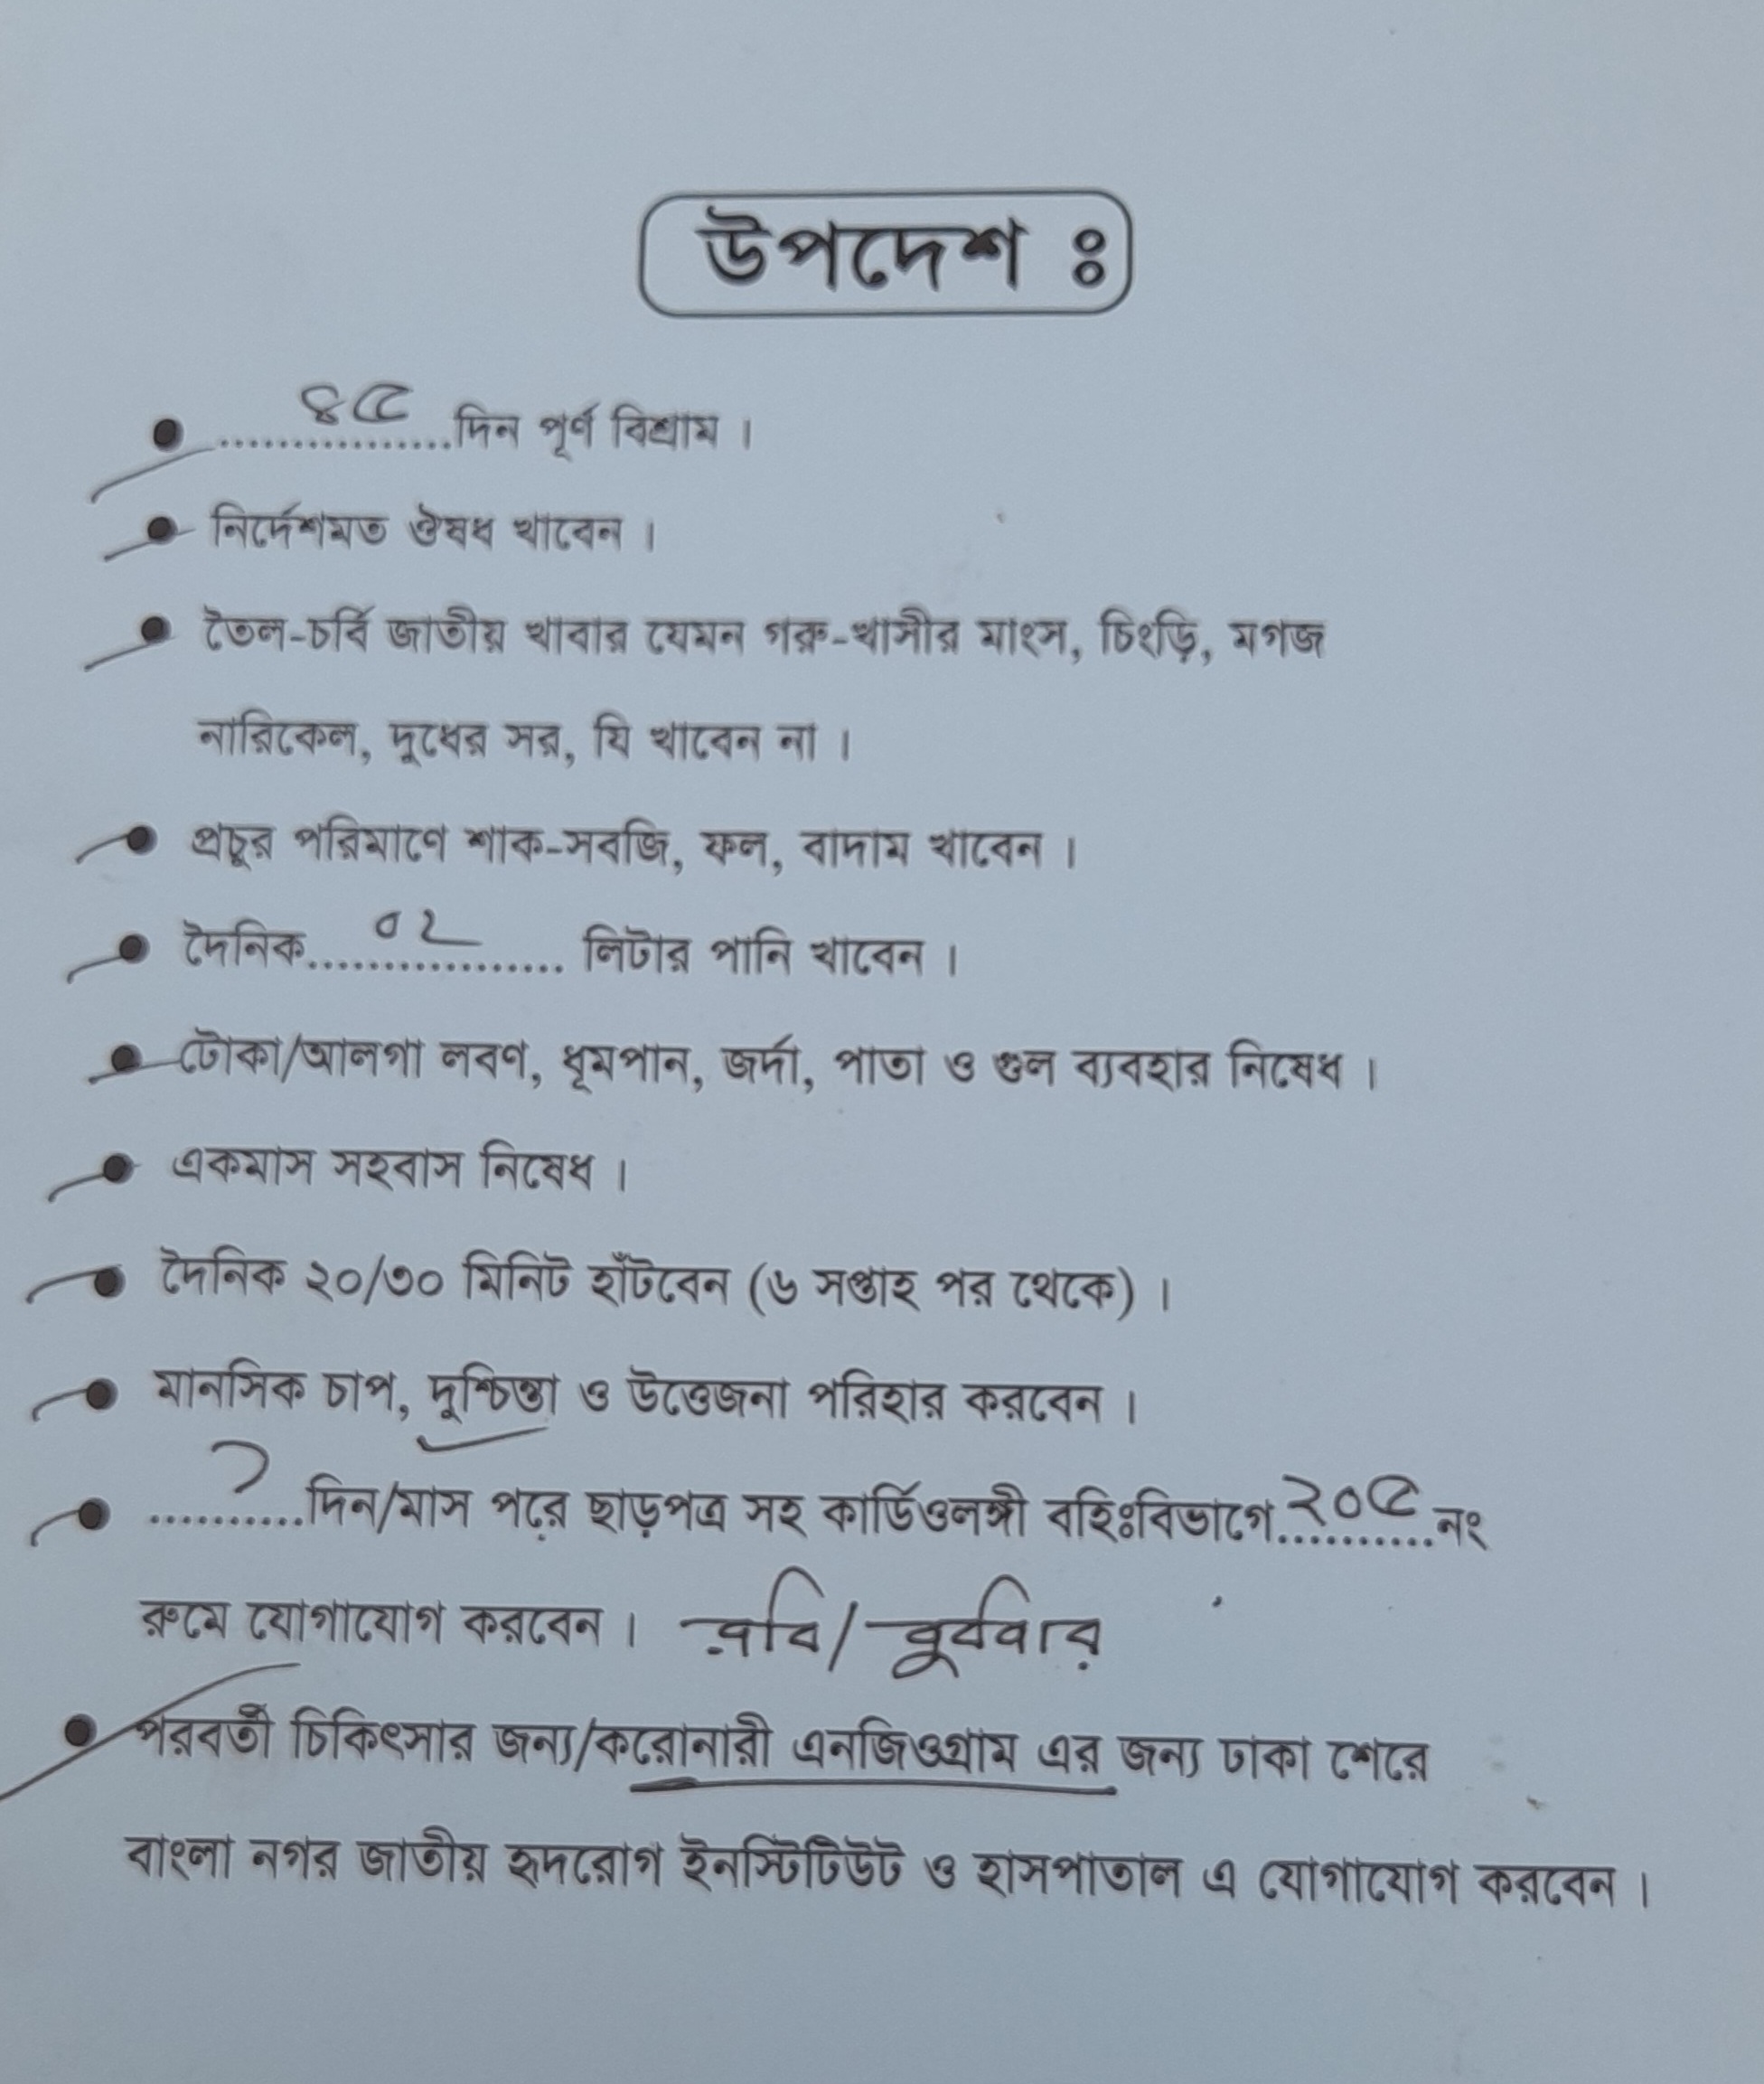 উপদেশ ঃ
● ......৪৫......দিন পূর্ণ বিশ্রাম ।
● নির্দেশমত ঔষধ খাবেন ।
● তৈল-চর্বি জাতীয় খাবার যেমন গরু-খাসীর মাংস, চিংড়ি, মগজ
নারিকেল, দুধের সর, ঘি খাবেন না ।
● প্রচুর পরিমাণে শাক-সবজি, ফল, বাদাম খাবেন ।
● দৈনিক......০২...... লিটার পানি খাবেন ।
● টোকা/আলগা লবণ, ধূমপান, জর্দা, পাতা ও গুল ব্যবহার নিষেধ ।
● একমাস সহবাস নিষেধ ।
● দৈনিক ২০/৩০ মিনিট হাঁটবেন (৬ সপ্তাহ পর থেকে) ।
● মানসিক চাপ, দুশ্চিন্তা ও উত্তেজনা পরিহার করবেন ।
● ....১....দিন/মাস পরে ছাড়পত্র সহ কার্ডিওলজী বহিঃবিভাগে....২০৫....নং
রুমে যোগাযোগ করবেন । রবি/বুধবার
● পরবর্তী চিকিৎসার জন্য/করোনারী এনজিওগ্রাম এর জন্য ঢাকা শেরে
বাংলা নগর জাতীয় হৃদরোগ ইনস্টিটিউট ও হাসপাতাল এ যোগাযোগ করবেন ।